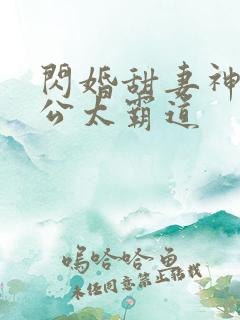 閃婚甜妻神
公太霸道
嗚哈哈魚
未經同意禁止轉載